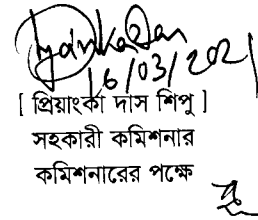 16/03/2021
[ প্রিয়াংকা দাস শিপু ]
সহকারী কমিশনার
কমিশনারের পক্ষে